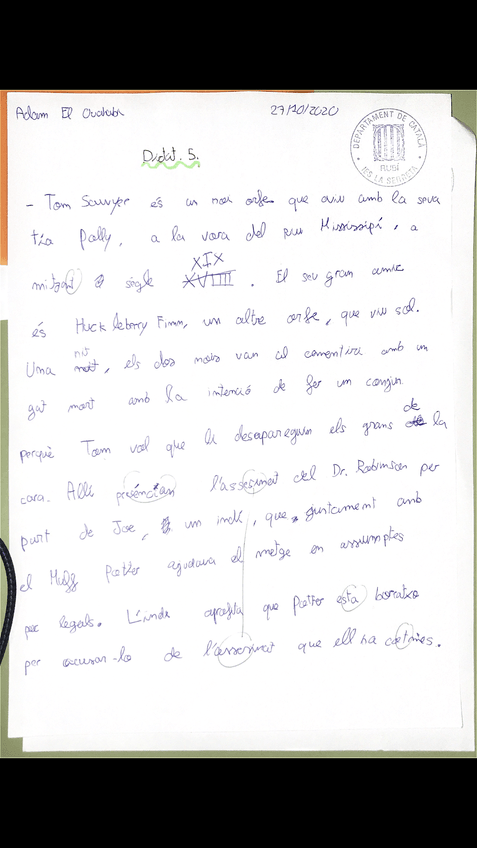 Adam El Ouahabi 27/10/2020
DEPARTAMENT DE CATALÀ
RUBÍ
INS LA SERRETA
Dictat. 5.
- Tom Sawyer és un noi orfe que viu amb la seva
tia Polly, a la vora del riu Mississipí, a
mitzant segle XVIIII XIX. El seu gran amic
és Huckleberry Finn, un altre orfe, que viu sol.
Una nit, els dos nois van al cementiri amb un
gat mort amb la intenció de fer un conjur
perquè Tom vol que li desapareguin els grans de la
cara. Allí presèncian l'assesinat del Dr. Robinson per
part de Joe, un indi, que, juntament amb
el Muff Potter ajudava el metge en assumptes
poc legals. L'indi aprofita que Potter esta borratxo
per acusar-lo de l'assesinat que ell ha comès.